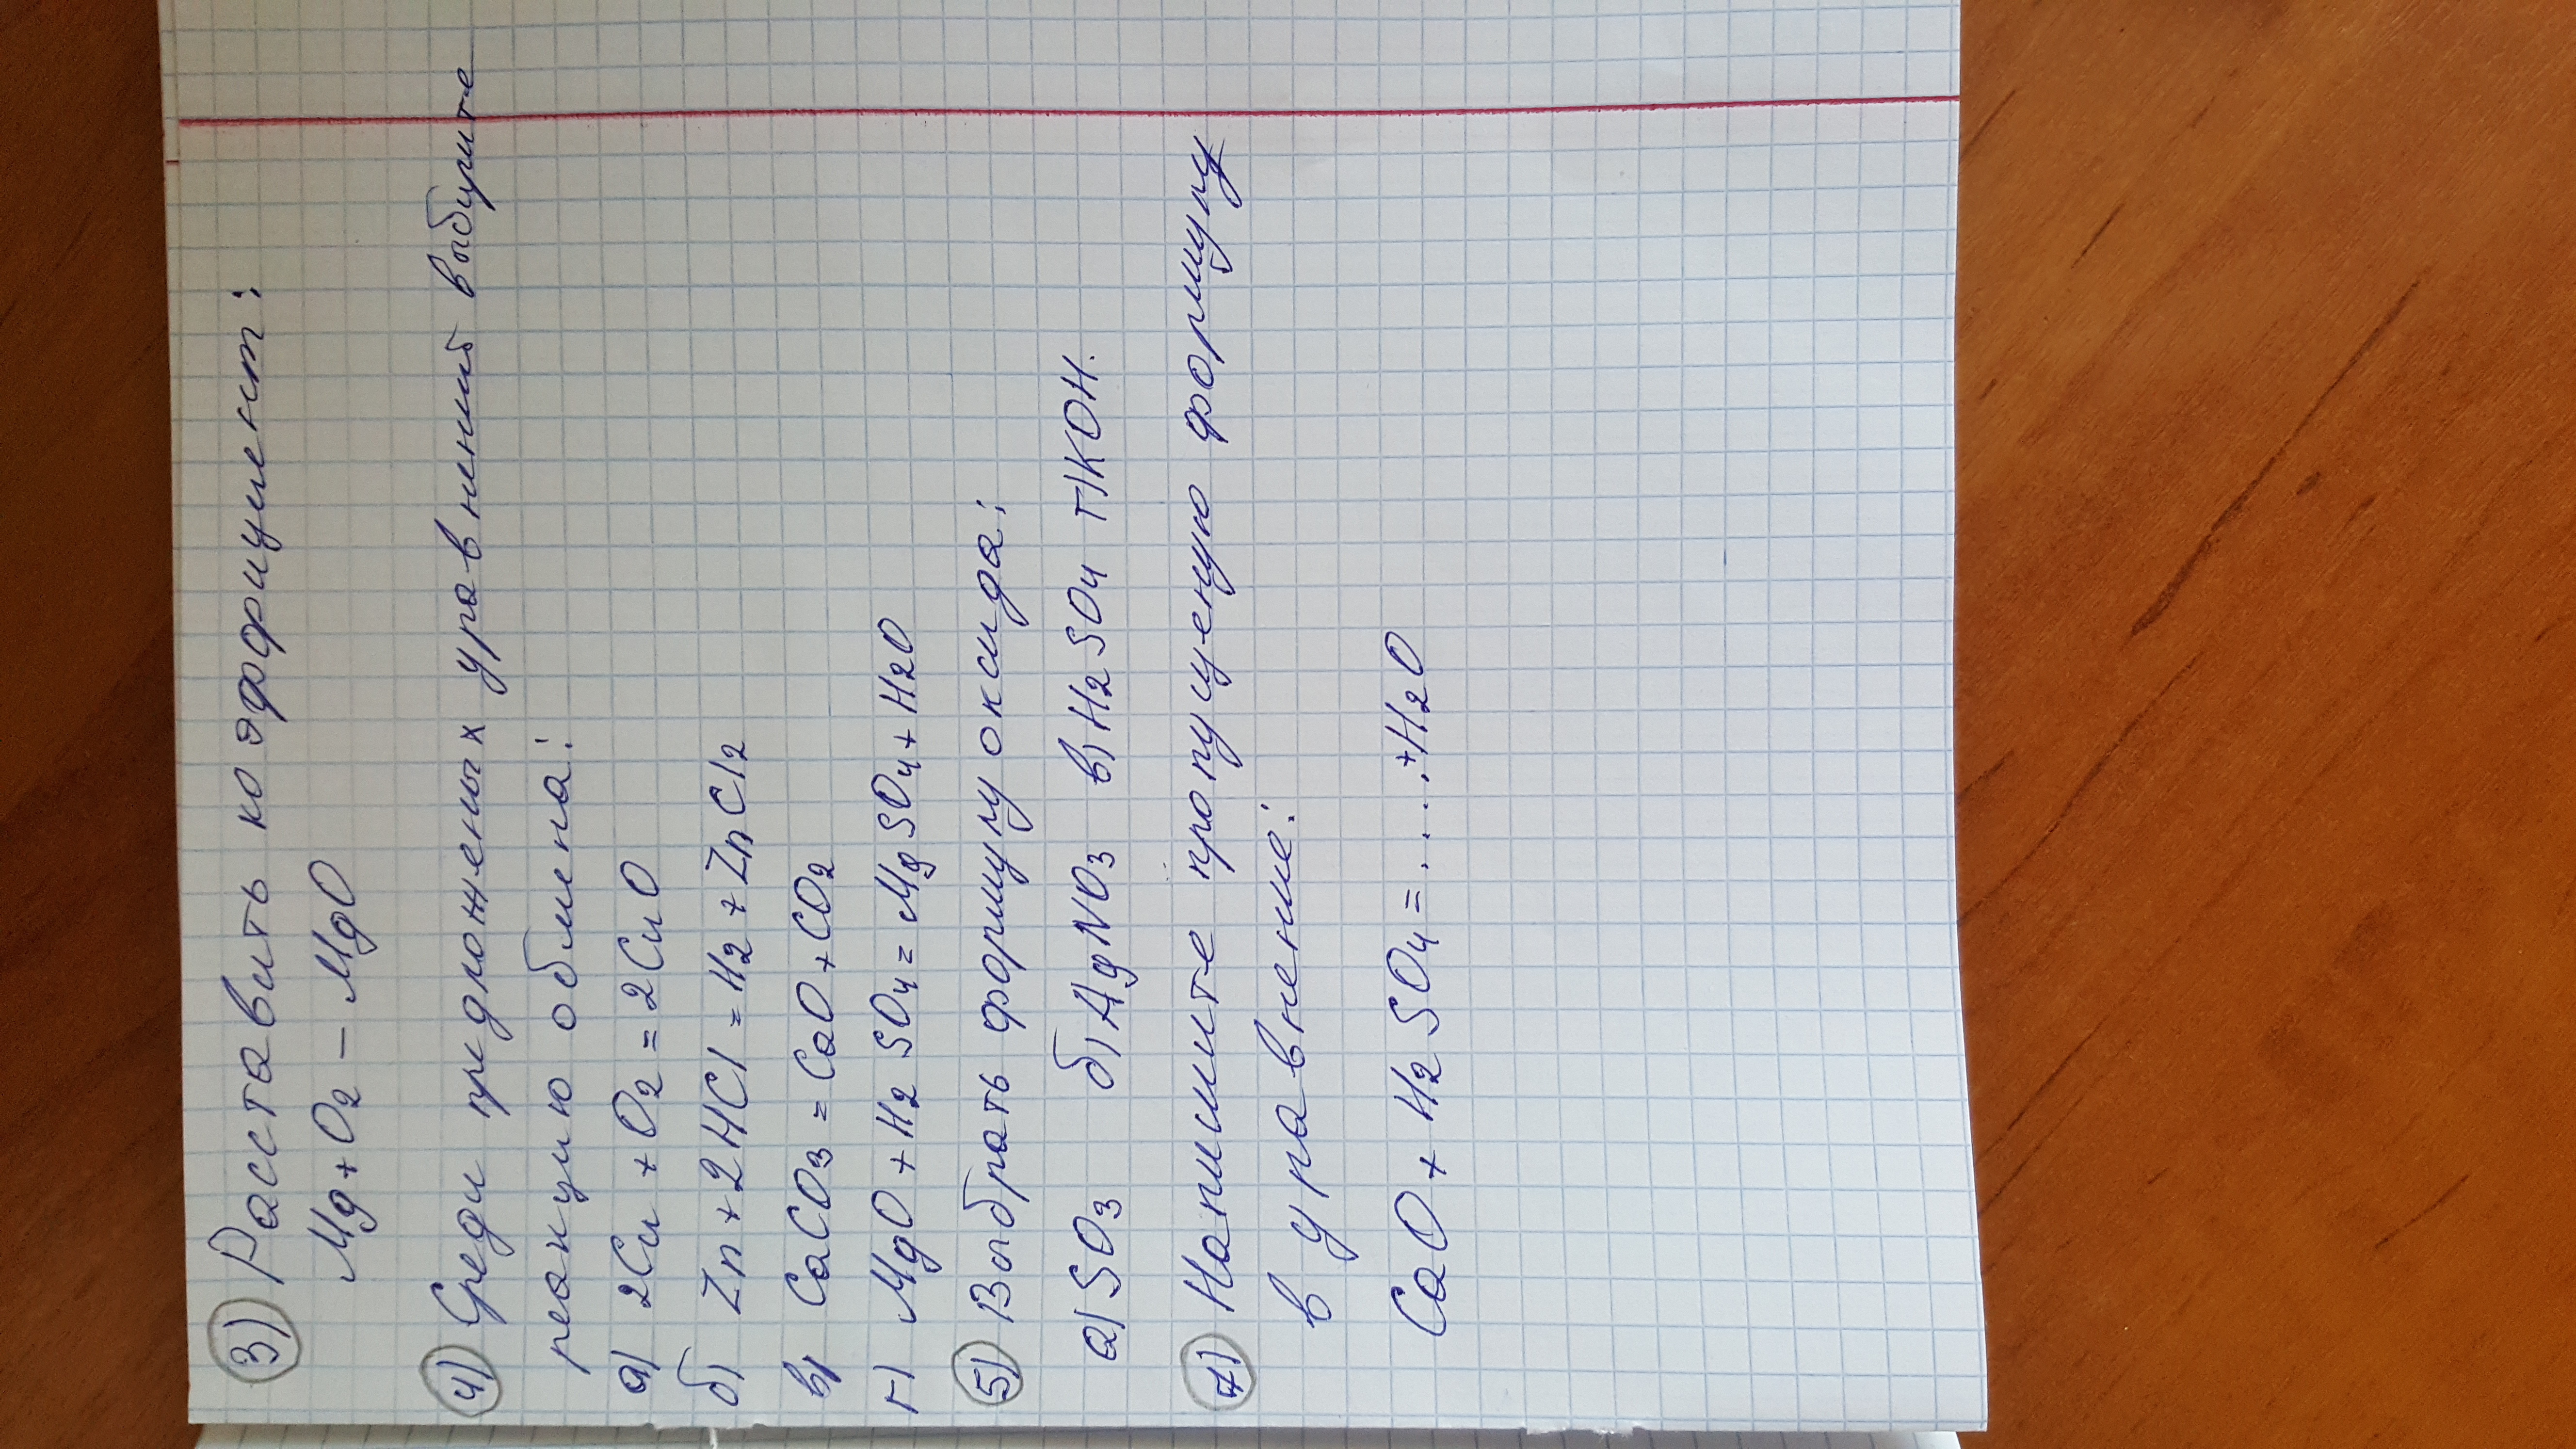 3) Расставить коэффициент:
Mg + O2 – MgO
4) Среди предложеных уравнений выбурите
реакцию обмена:
а) 2Cu + O2 = 2CuO
б) Zn + 2HCl = H2 + ZnCl2
в) CaCO3 = CaO + CO2
г) MgO + H2SO4 = MgSO4 + H2O
5) Выбрать формулу оксида:
а) SO3 б) AgNO3 в) H2SO4 г) KOH.
7) Напишите пропущеную формулу
в уравнение:
CaO + H2SO4 = .... + H2O